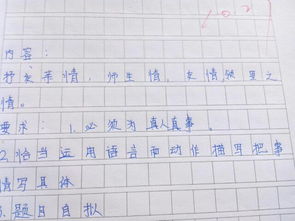 10.21
内容:
抒发亲情,师生情,友情邻里之
情。
要求: 1.必须为真人真事。
2.恰当运用语言和动作描写把事
情写具体
3.题目自拟